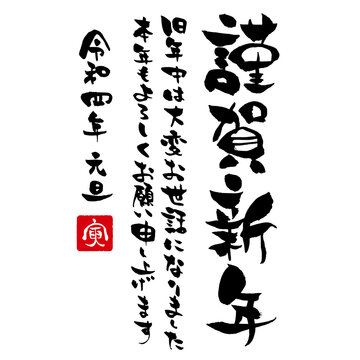 謹賀新年
旧年中は大変お世話になりました
本年もよろしくお願い申し上げます
令和四年 元旦
寅